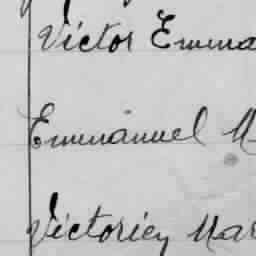 Victor Emma
Emmanuel M
Victorien Mar